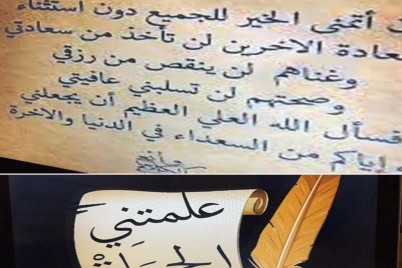 أتمنى الخير للجميع دون استثناء
سعادة الاخرين لن تأخذ من سعادتي
وغناهم لن ينقص من رزقي
وصحتهم لن تسلبني عافيتي
فسأل الله العلي العظيم أن يجعلني
و إياكم من السعداء في الدنيا والآخرة
علمتني
الحياة